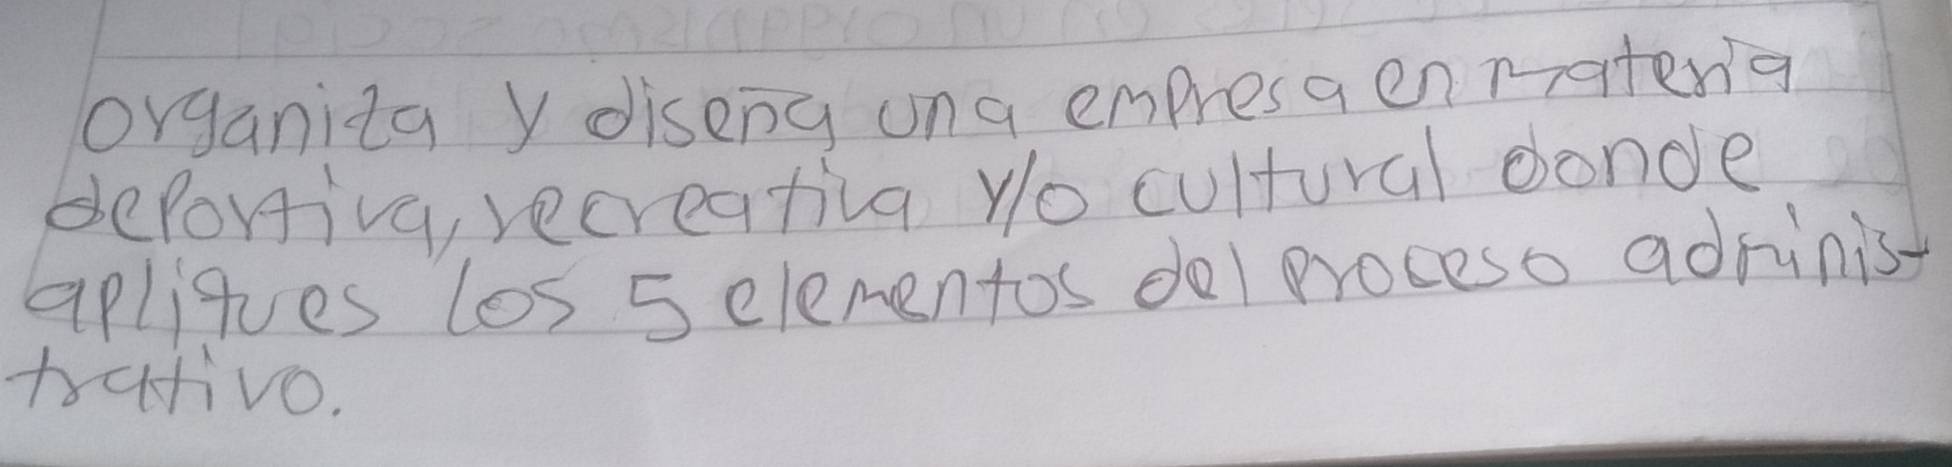 organiza y diseña una empresa en materia
deportiva, recreativa y/o cultural donde
apliques los 5 elementos del proceso adminis-
trativo.